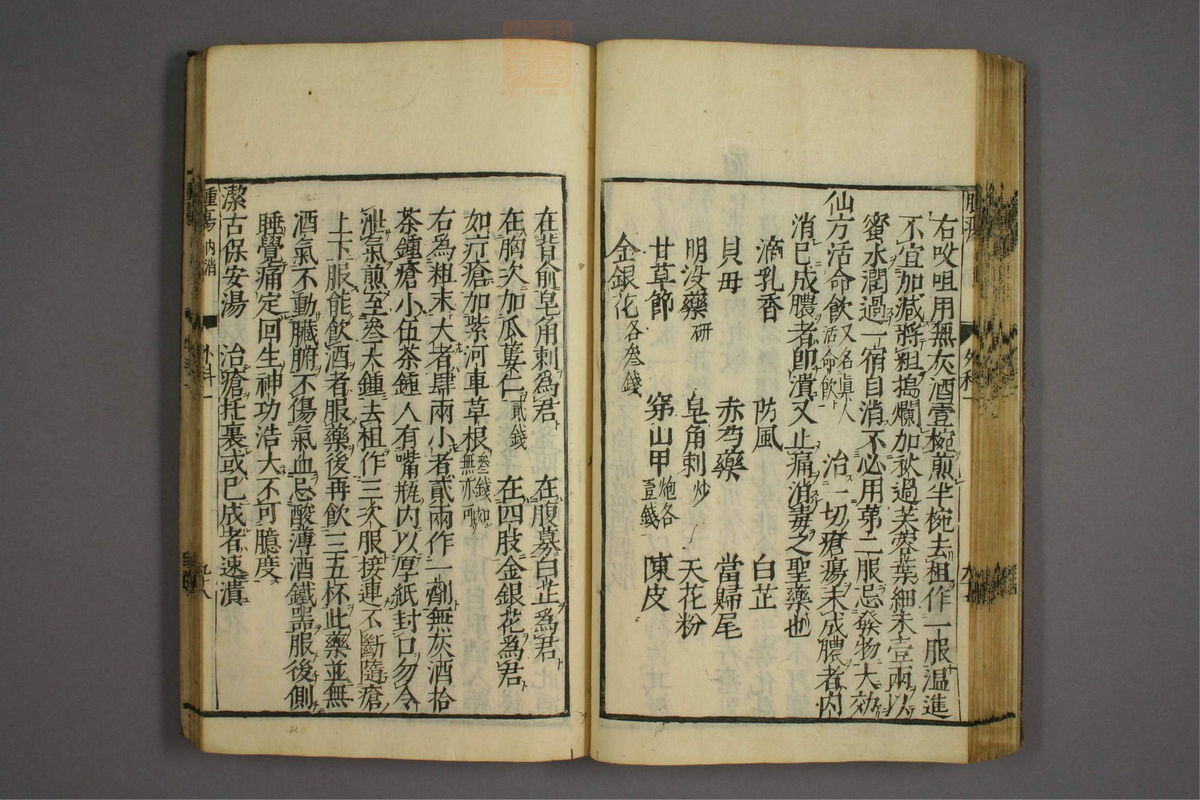 右㕮咀用無灰酒壹椀煎半椀去柤作一服温進
不宜加减將粗搗爛加秋過芙蓉葉細末壹兩以
蜜水潤過一宿自消不必用第二服忌發物大効
仙方活命飲又名眞人活命飲 治一切瘡瘍未成膿者內
消已成膿者卽潰又止痛消毒之聖藥也
滴乳香 防風 白芷
貝母 赤芍藥 當歸尾
明没藥研 皂角刺炒 天花粉
甘草節 穿山甲炮各壹錢 陳皮
金銀花各叁錢
在背俞皂角刺爲君 在腹募白芷爲君
在胸次加瓜蔞仁貳錢 在四肢金銀花爲君
如疔瘡加紫河車草根叁錢如無亦可
右爲粗末大者肆兩小者貳兩作一劑無灰酒拾
茶鍾瘡小伍茶鍾人有嘴瓶內以厚紙封口勿令
泄氣煎至叁大鍾去柤作三次服接連不斷隨瘡
上下服能飲酒者服藥後再飲三五杯此藥並無
酒氣不動臟腑不傷氣血忌酸薄酒鐵器服後側
睡覺痛定回生神功浩大不可臆度
潔古保安湯 治瘡托裏或已成者速潰
腫瘍內消 外科一 九十八